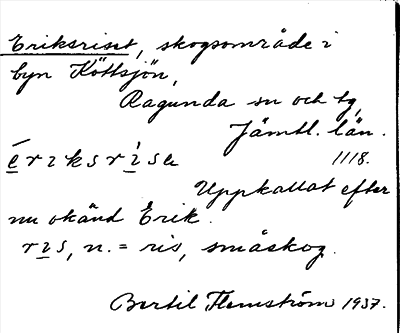 Eriksriset, skogsområde i
byn Köttsjön,
Ragunda sn och tg,
Jämtl. län.
ēriksrisα 1118.
Uppkallat efter
nu okänd Erik.
ris, n. = ris, småskog.
Bertil Flemström 1937.